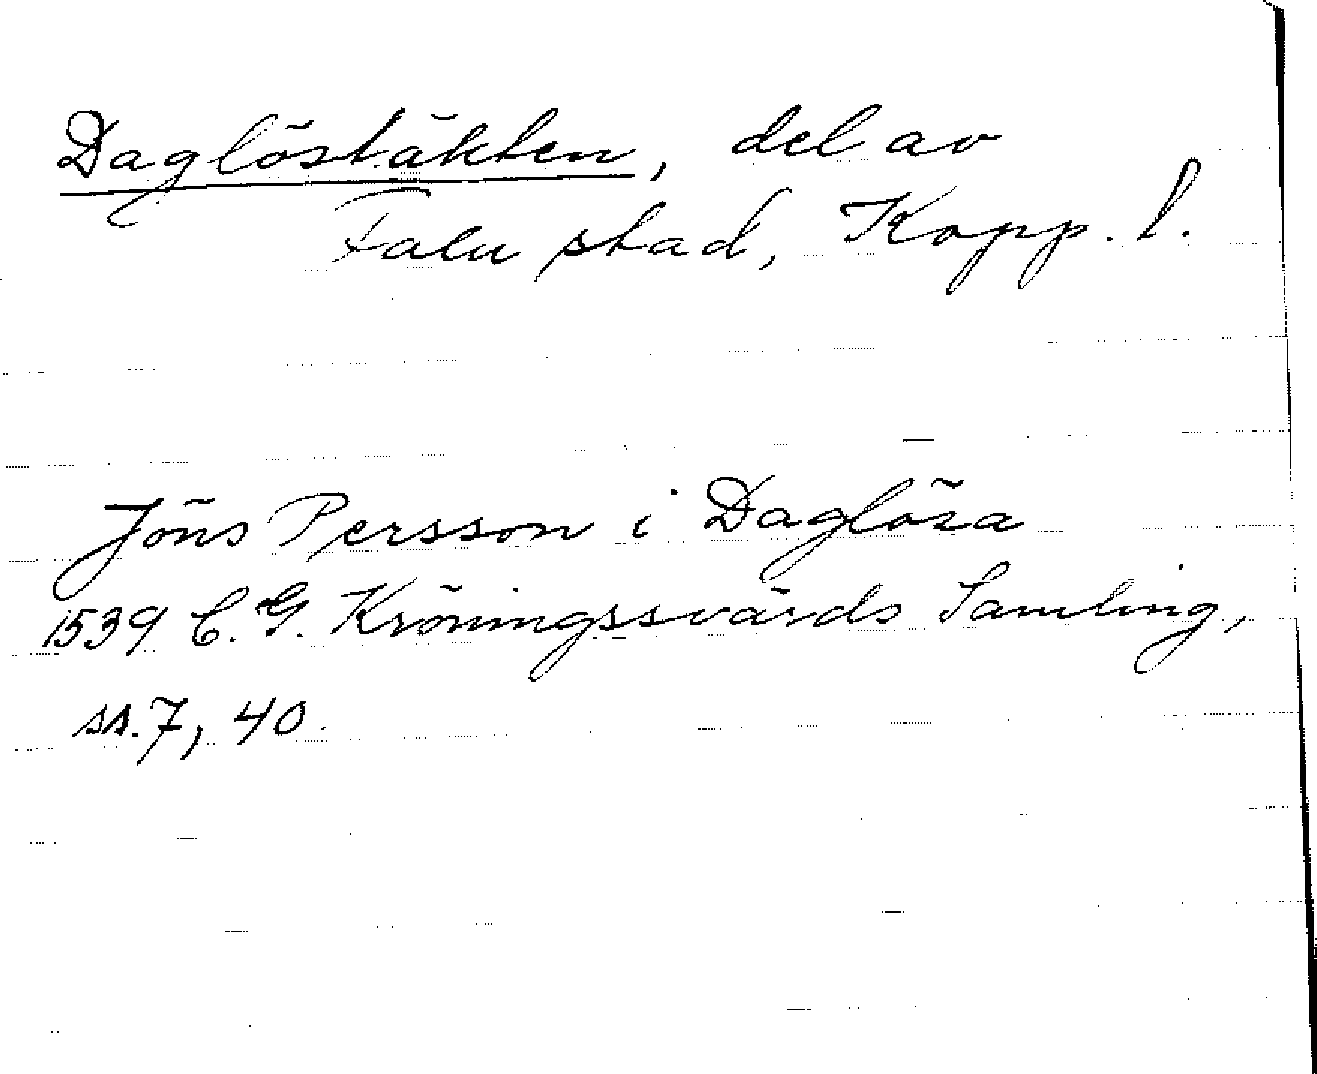 Daglöstäkten, del av
Falu stad, Kopp. l.
Jöns Persson i Daglösa
1539 C. G. Kröningssvärds Samling,
ss. 7, 40.